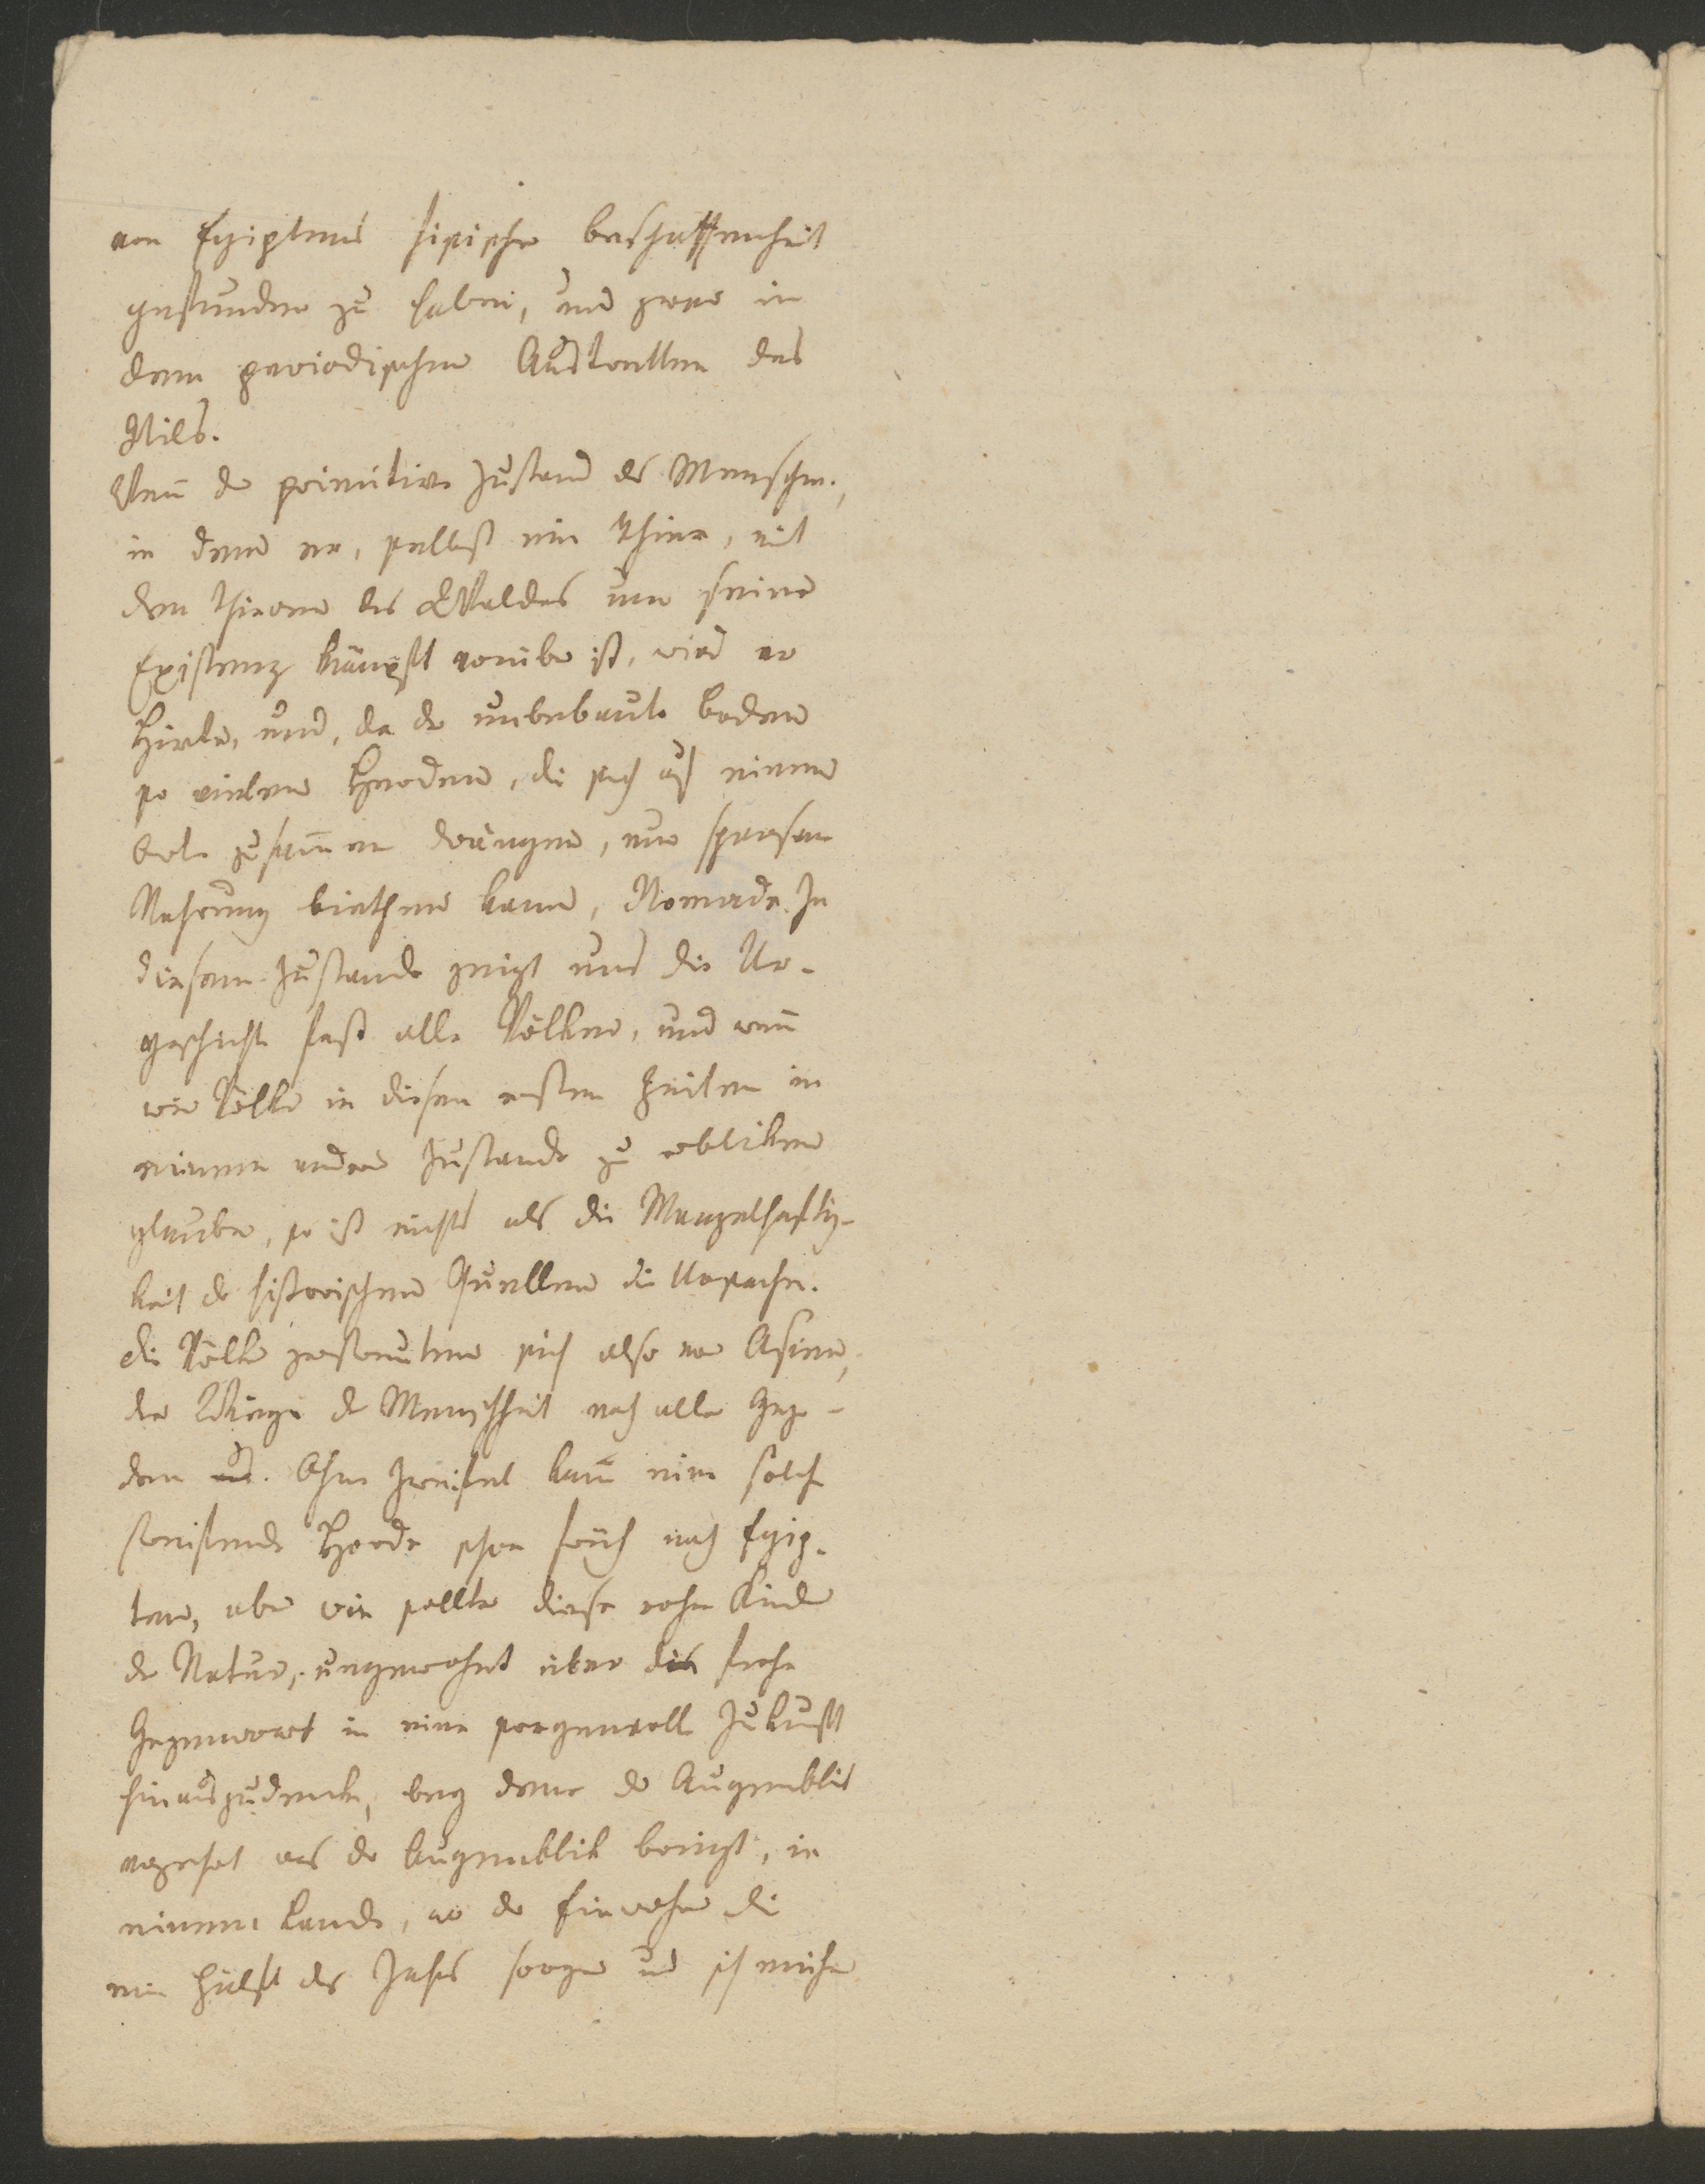 von Egiptens fisischer beschaffenheit
gefunden zu haben, und zwar in
dem periodischen Austretten des
Nils.
Wenn der primitive Zustand des Menschen,
in dem er, selbst ein Thier, mit
den Thieren des Waldes um seine
Existenz kämpft vorüber ist, wird er
Hirte, und, da der unbebaute boden
so vielen Heerden, die sich auf einem
Orte zusammen drängen, nur sparsam
Nahrung biethen kann, Nomade. In
diesem Zustande zeigt uns die Ur-
geschichte fast alle Völker, und wenn
wir Völker in diesen ersten Zeiten in
einem andern Zustande zu erbliken
glauben, so ist nichts als die Mangelhaftig-
keit der historischen Quellen die Ursache.
die Völker zerstreuten sich also von Asien,
der Wiege der Menschheit nach allen Gegen-
den aus. Ohne Zweifel kam eine solche
streifende Horde schon früh nach Egip-
ten, aber wie sollten diese rohen Kinder
der Natur, ungewohnt über die frohe
Gegenwart in eine sorgenvolle Zukunft
hinauszudenken, bey denen der Augenblik
verzehrt was der Augenblik bringt, in
einem Lande, wo der Einwohner die
eine Hälfte des Jahrs sorgen und sich mühen